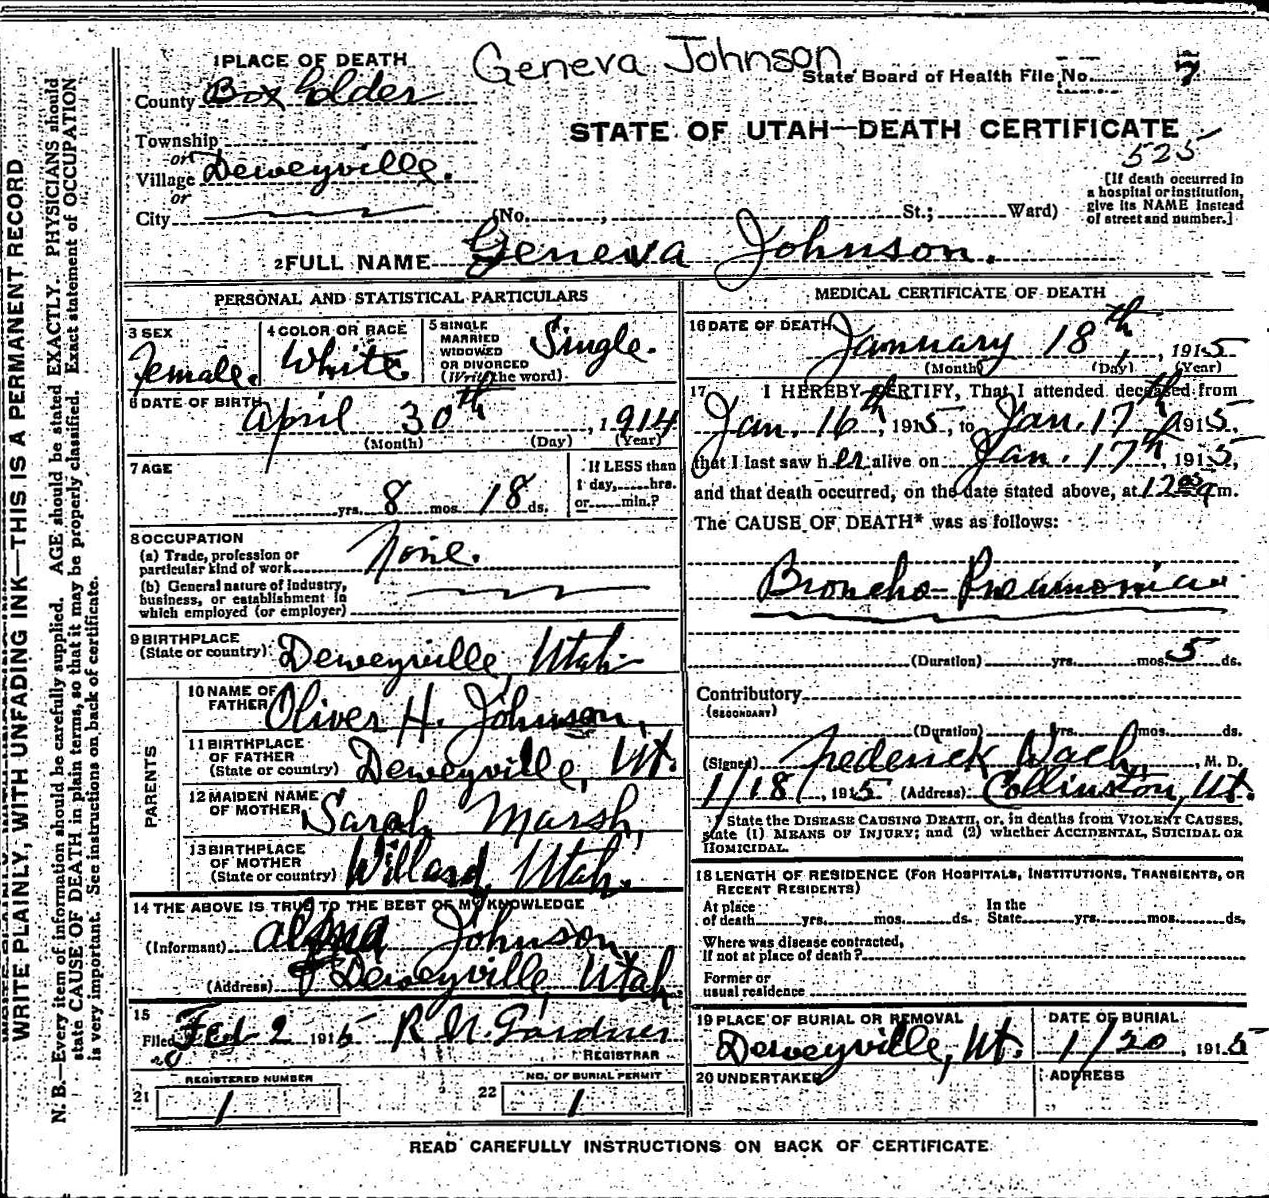 Geneva Johnson
1 PLACE OF DEATH
State Board of Health File No. 7
County Box Elder
STATE OF UTAH—DEATH CERTIFICATE
Township
or
525
Village Deweyville.
or
[If death occurred in
a hospital or institution,
give its NAME instead
of street and number.]
City (No. ; St.; Ward)
2 FULL NAME Geneva Johnson.
PERSONAL AND STATISTICAL PARTICULARS
3 SEX
Female.
4 COLOR OR RACE
White
5 SINGLE
MARRIED
WIDOWED
OR DIVORCED
(Write the word)
Single.
6 DATE OF BIRTH
April 30th, 1914
(Month) (Day) (Year)
7 AGE
yrs. 8 mos. 18 ds.
If LESS than
1 day, hrs.
or min.?
8 OCCUPATION
(a) Trade, profession or
particular kind of work None.
(b) General nature of industry,
business, or establishment in
which employed (or employer)
9 BIRTHPLACE
(State or country) Deweyville, Utah
PARENTS
10 NAME OF
FATHER Oliver H. Johnson,
11 BIRTHPLACE
OF FATHER
(State or country) Deweyville, Ut.
12 MAIDEN NAME
OF MOTHER Sarah Marsh,
13 BIRTHPLACE
OF MOTHER
(State or country) Willard, Utah.
14 THE ABOVE IS TRUE TO THE BEST OF MY KNOWLEDGE
(Informant) Johnson
(Address) Deweyville, Utah.
15
Filed Feb 2 1915 R. N. Gardner
REGISTRAR
REGISTERED NUMBER
21 1
NO. OF BURIAL PERMIT
22 1
MEDICAL CERTIFICATE OF DEATH
16 DATE OF DEATH
January 18th, 1915
(Month) (Day) (Year)
17 I HEREBY CERTIFY, That I attended deceased from
Jan. 16th, 1915, to Jan. 17th 1915,
that I last saw her alive on Jan. 17th, 1915,
and that death occurred, on the date stated above, at 12 00 a m.
The CAUSE OF DEATH* was as follows:
Broncho-Pneumonia
(Duration) yrs. mos. 5 ds.
Contributory
(SECONDARY)
(Duration) yrs. mos. ds.
(Signed) Frederick Dach, M. D.
1/18, 1915 (Address) Collinston, Ut.
* State the DISEASE CAUSING DEATH, or, in deaths from VIOLENT CAUSES,
state (1) MEANS OF INJURY; and (2) whether ACCIDENTAL, SUICIDAL OR
HOMICIDAL.
18 LENGTH OF RESIDENCE (FOR HOSPITALS, INSTITUTIONS, TRANSIENTS, OR
RECENT RESIDENTS)
At place
of death yrs. mos. ds.
In the
State yrs. mos. ds.
Where was disease contracted,
if not at place of death?
Former or
usual residence
19 PLACE OF BURIAL OR REMOVAL
Deweyville, Ut.
DATE OF BURIAL
1/20, 1915
20 UNDERTAKER
ADDRESS
READ CAREFULLY INSTRUCTIONS ON BACK OF CERTIFICATE
WRITE PLAINLY, WITH UNFADING INK—THIS IS A PERMANENT RECORD
N. B.—Every item of information should be carefully supplied. AGE should be stated EXACTLY. PHYSICIANS should
state CAUSE OF DEATH in plain terms, so that it may be properly classified. Exact statement of OCCUPATION
is very important. See instructions on back of certificate.